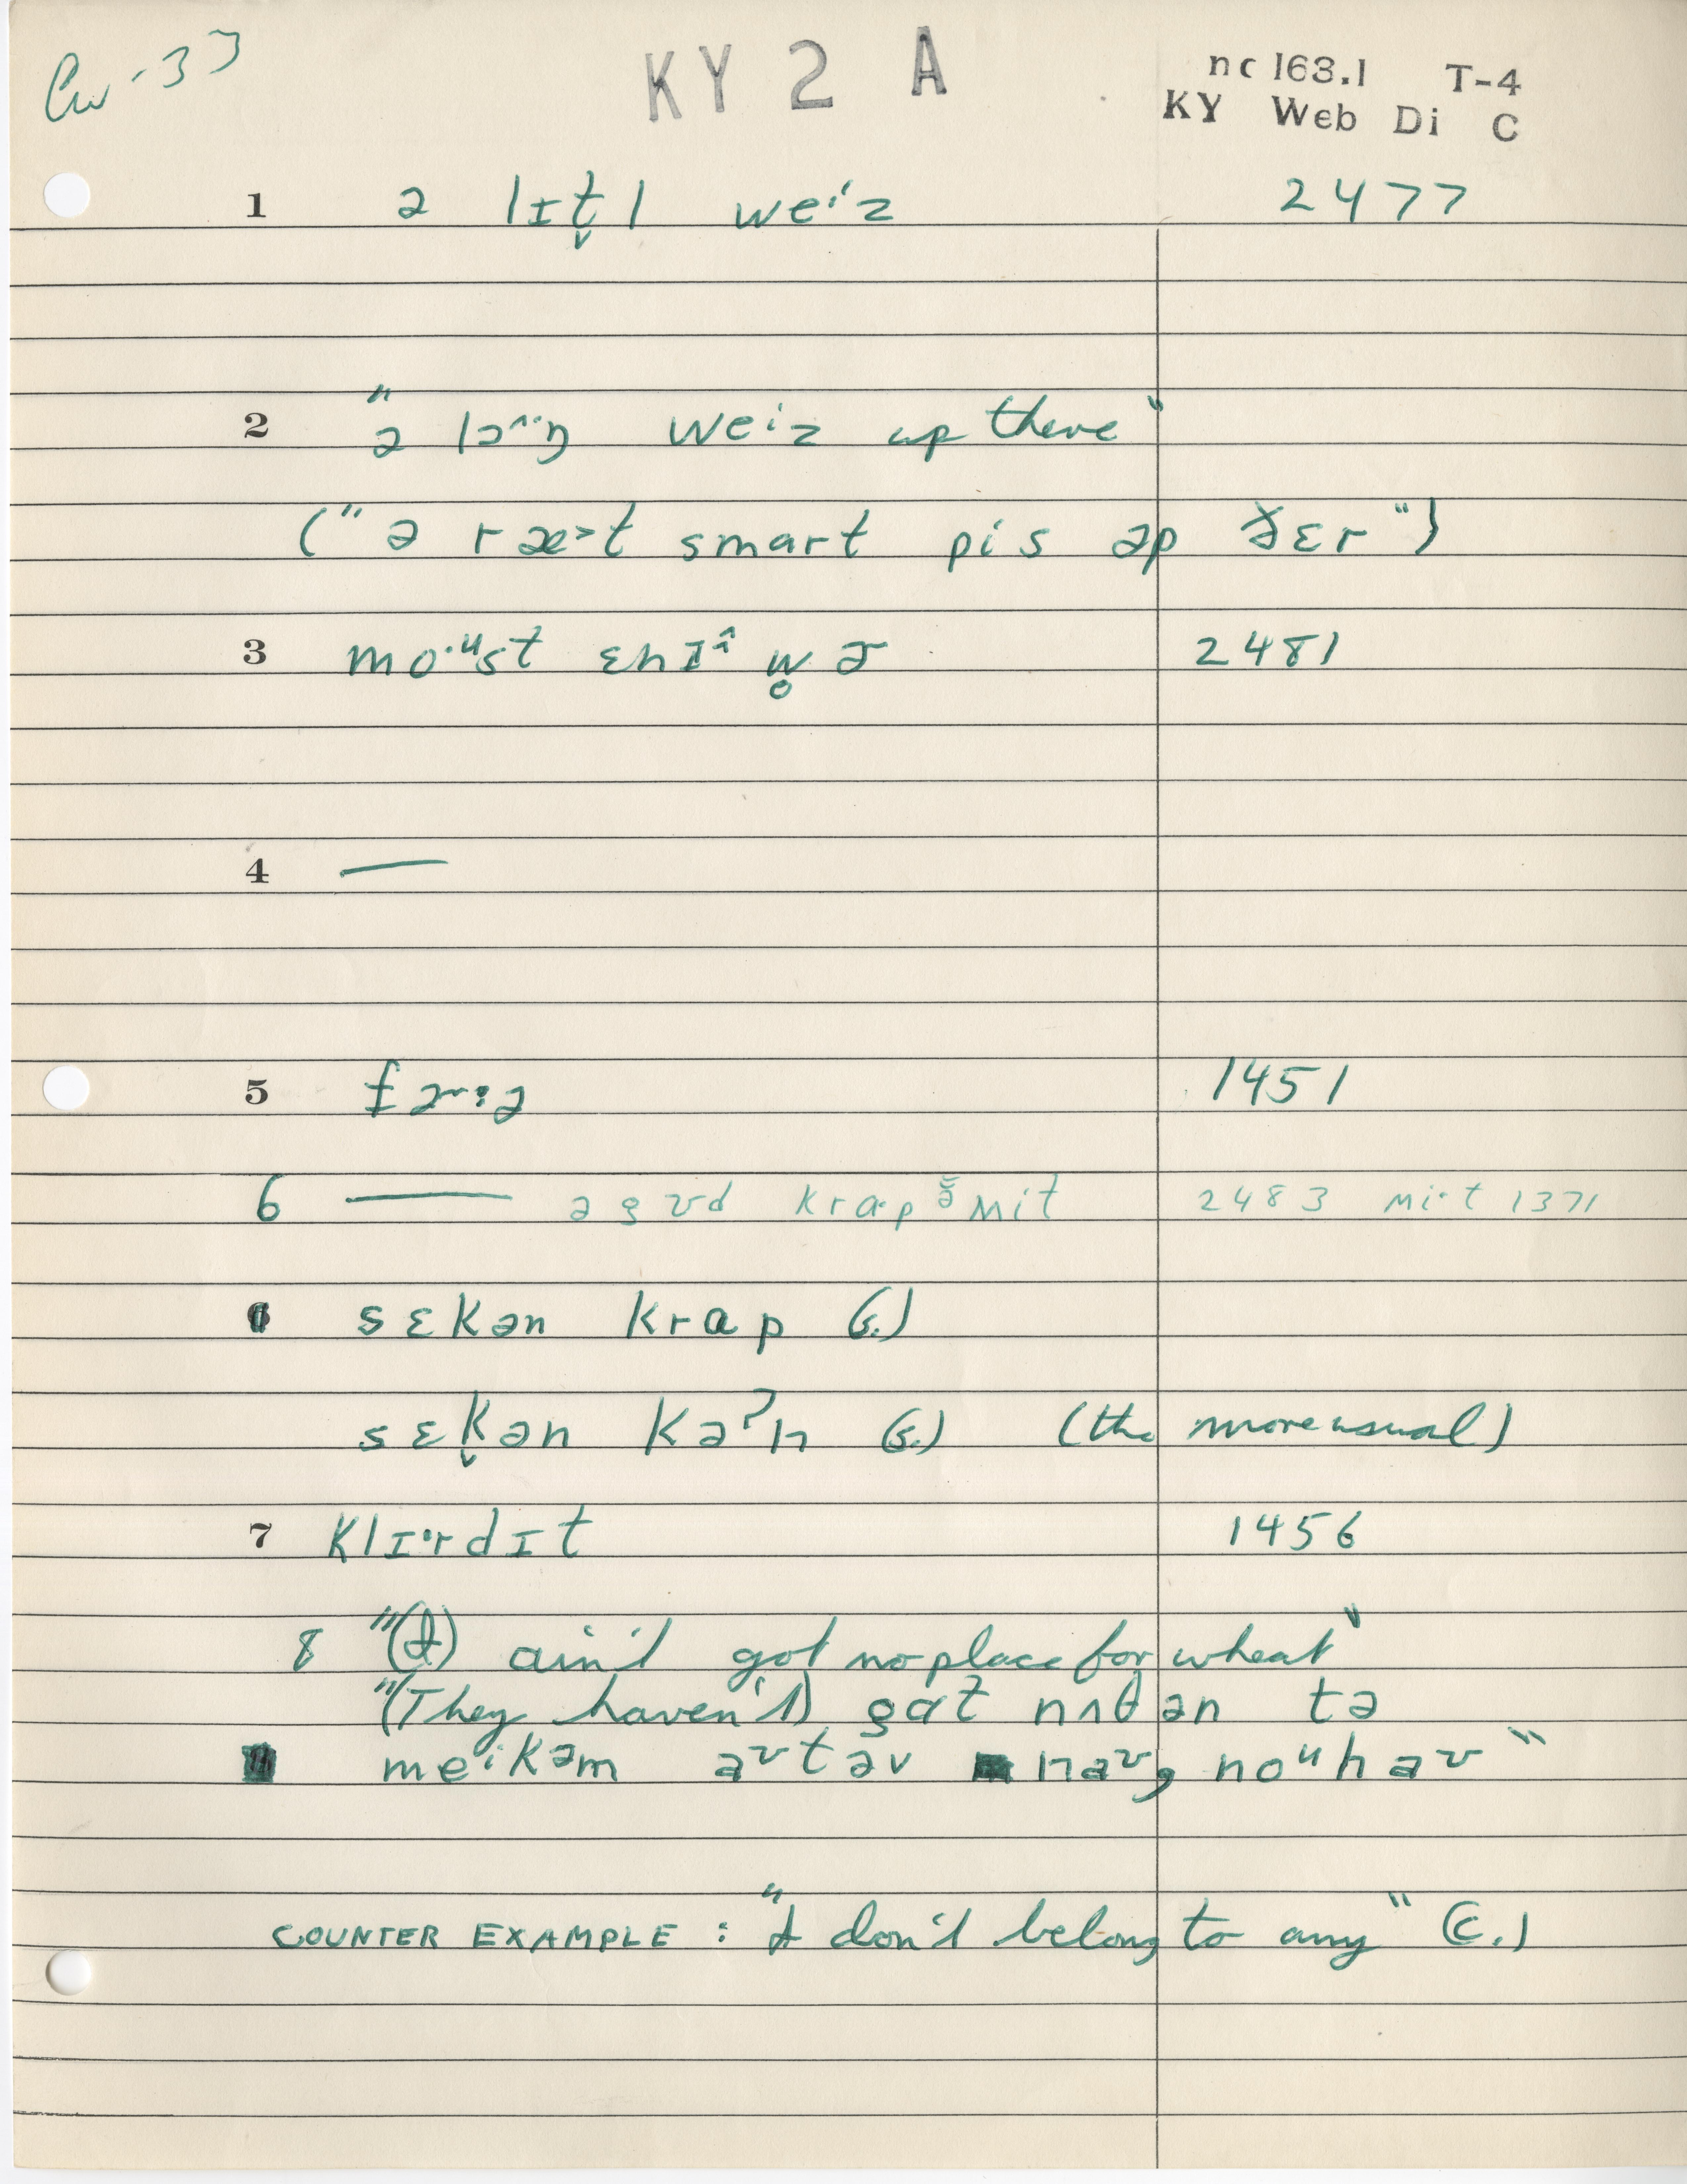 Cw-33
KY 2 A
nc 163.1 T-4
KY Web Di C
1 ə lɪt̬l weⁱz 2477
2 "ə lɔ^·ŋ weⁱz up there"
("ə ræ>t smart pis əp ðɛr")
3 mo·ᵘst ɛnɪ w̥ɚ 2481
4 —
5 1451
6 — ə gʊd krɑ·p ə̆ мit 2483 мi·t 1371
sɛkən krɑp (s.)
sɛk̬ən kəˀn (s.) (the more usual)
7 klɪ·rdɪt 1456
8 "(I) ain't got no place for wheat"
"(They haven't) gɑt nʌθən tə
meⁱkəm aʊtəv naʊ, noᵘhaʊ"
COUNTER EXAMPLE : "I don't belong to any" (c.)